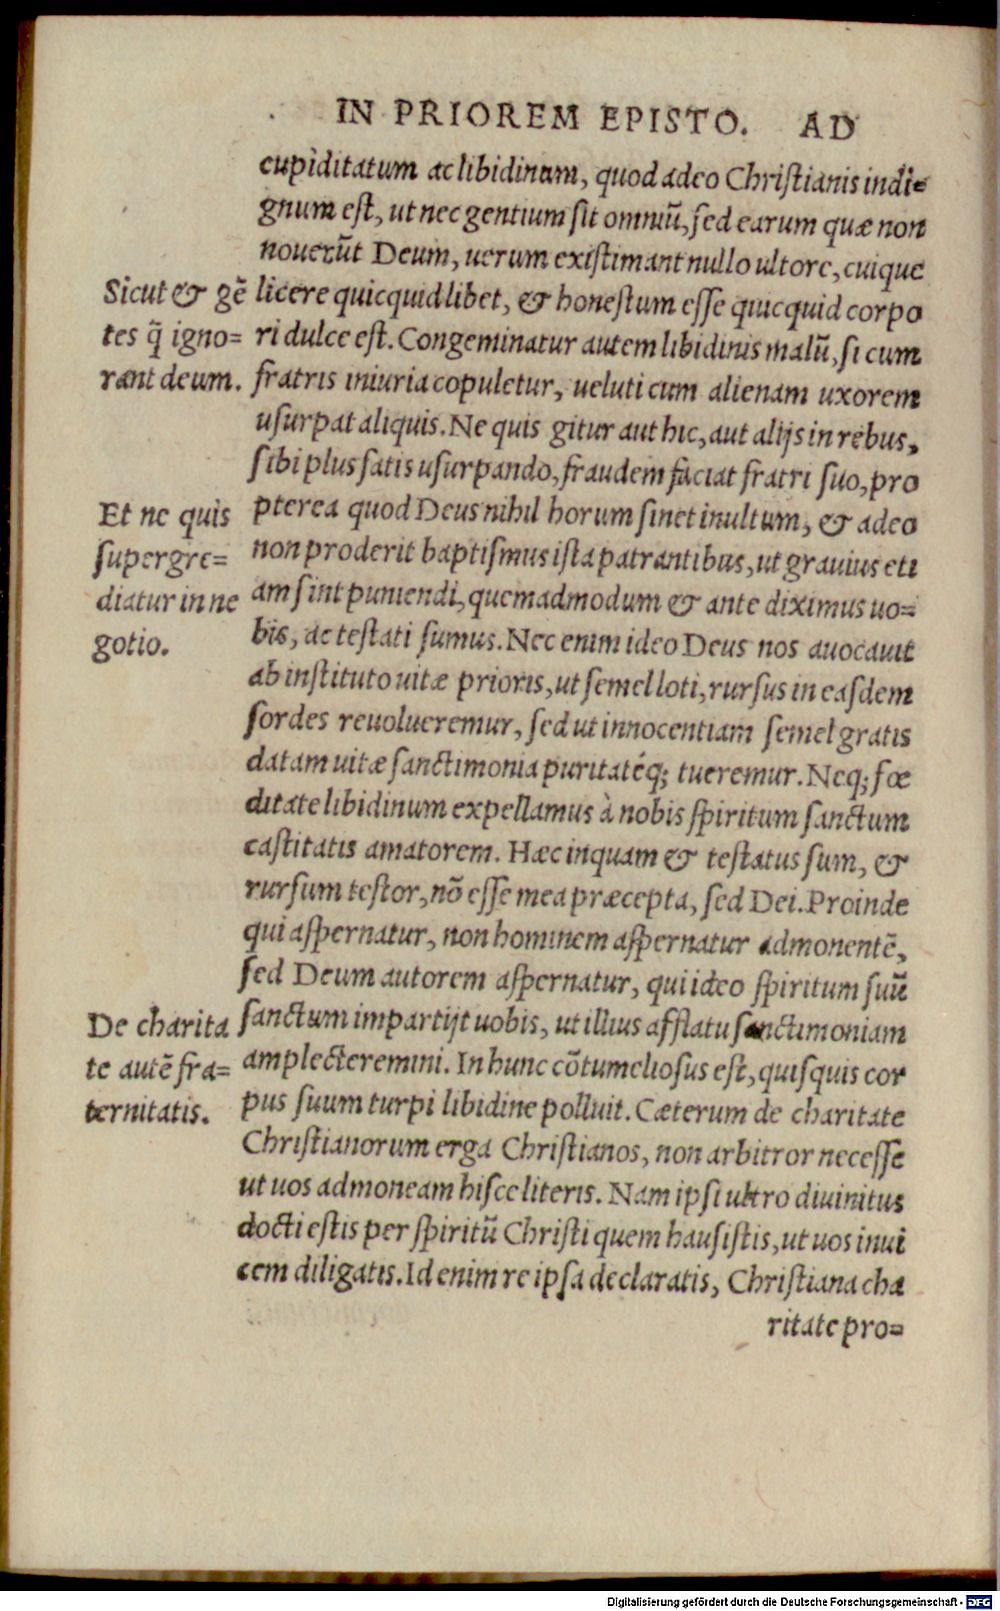 IN PRIOREM EPISTO. AD
cupiditatum ac libidinum, quod adeo Christianis indi=
gnum est, ut nec gentium sit omniũ, sed earum quæ non
nouerũt Deum, uerum existimant nullo ultore, cuique
licere quicquid libet, & honestum esse quicquid corpo
ri dulce est. Congeminatur autem libidinis malũ, si cum
fratris iniuria copuletur, ueluti cum alienam uxorem
usurpat aliquis. Ne quis gitur aut hic, aut alijs in rebus,
sibi plus satis usurpando, fraudem faciat fratri suo, pro
pterea quod Deus nihil horum sinet inultum, & adeo
non proderit baptismus ista patrantibus, ut grauius eti
am sint puniendi, quemadmodum & ante diximus uo=
bis, ac testati sumus. Nec enim ideo Deus nos auocauit
ab instituto uitæ prioris, ut semel loti, rursus in easdem
sordes reuolueremur, sed ut innocentiam semel gratis
datam uitæ sanctimonia puritatéq; tueremur. Neq; fœ
ditate libidinum expellamus à nobis spiritum sanctum
castitatis amatorem. Hæc inquam & testatus sum, &
rursum testor, nõ esse mea præcepta, sed Dei. Proinde
qui aspernatur, non hominem aspernatur admonentẽ,
sed Deum autorem aspernatur, qui ideo spiritum suũ
sanctum impartijt uobis, ut illius afflatu sanctimoniam
amplecteremini. In hunc cõtumeliosus est, quisquis cor
pus suum turpi libidine polluit. Cæterum de charitate
Christianorum erga Christianos, non arbitror necesse
ut uos admoneam hisce literis. Nam ipsi ultro diuinitus
docti estis per spiritũ Christi quem hausistis, ut uos inui
cem diligatis. Id enim re ipsa declaratis, Christiana cha
ritate pro=
Sicut & gẽ
tes q̃ igno=
rant deum.
Et ne quis
supergre=
diatur in ne
gotio.
De charita
te autẽ fra=
ternitatis.
Digitalisierung gefördert durch die Deutsche Forschungsgemeinschaft - DFG